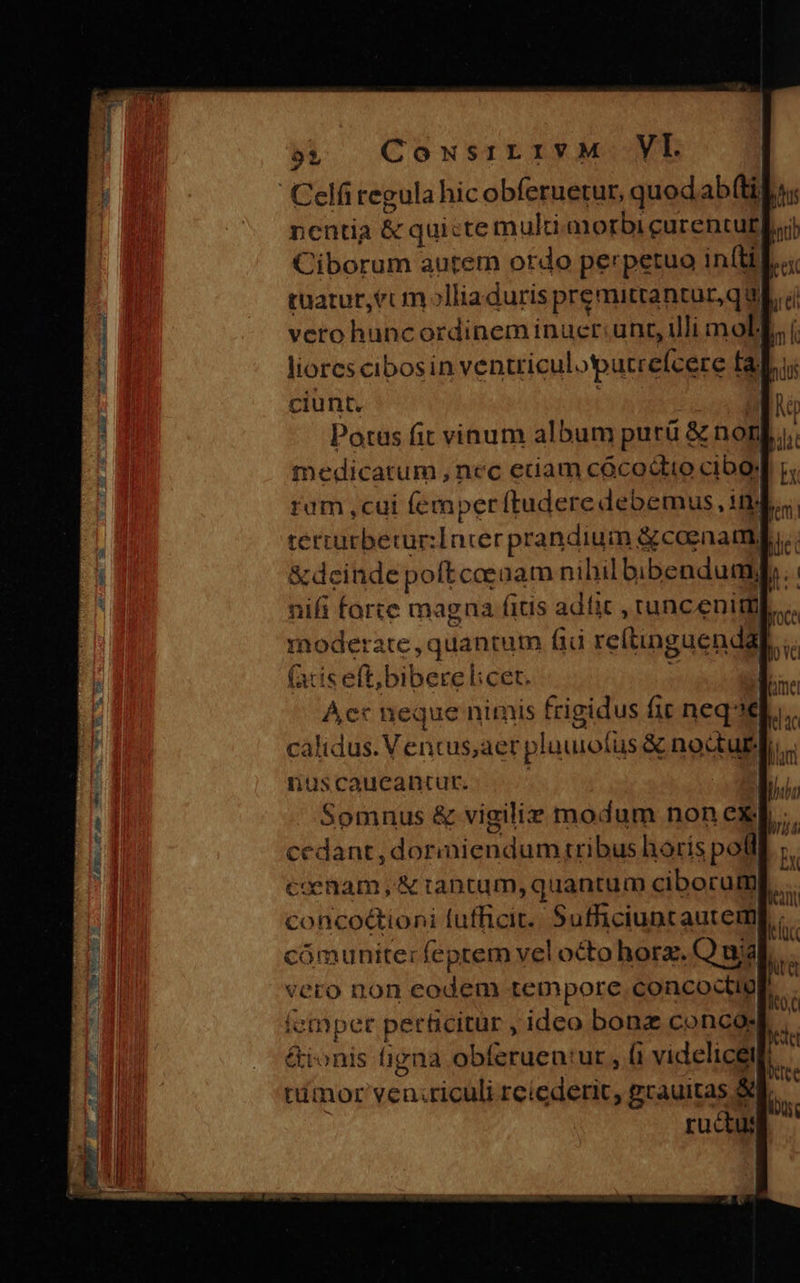 92 CONSILIVM VI.
Celſi regula hic obſeruetur, quod abſti
nentia & quiete multi morbi curentur
Ciborum autem ordo perpetuo inſti
tuatur, vt mollia duris premittantur, qui
vero hunc ordinem inuertunt, illi mol
liores cibos in ventriculo putreſcere fa
ciunt.
Potus ſit vinum album purū & non
medicatum, nec etiam cōcoctio cibo
rum, cui ſemper ſtudere debemus, in
terturbetur: Inter prandium & cœnam
& deinde poſt cœnam nihil bibendum,
niſi forte magna ſitis adſit, tunc enim
moderate, quantum ſiti reſtinguendæ
ſatis eſt, bibere licet.
Aer neque nimis frigidus ſit neque
calidus. Ventus, aer pluuioſus & noctur
nus caueantur.
Somnus & vigiliæ modum non ex
cedant, dormiendum tribus horis poſt
cœnam, & tantum, quantum ciborum
concoctioni ſufficit. Sufficiunt autem
cōmuniter ſeptem vel octo horæ. Quia
vero non eodem tempore concoctio
ſemper perficitur, ideo bonæ conco
ctionis ſigna obſeruentur, ſi videlicet
tumor ventriculi reſederit, grauitas &
ructus